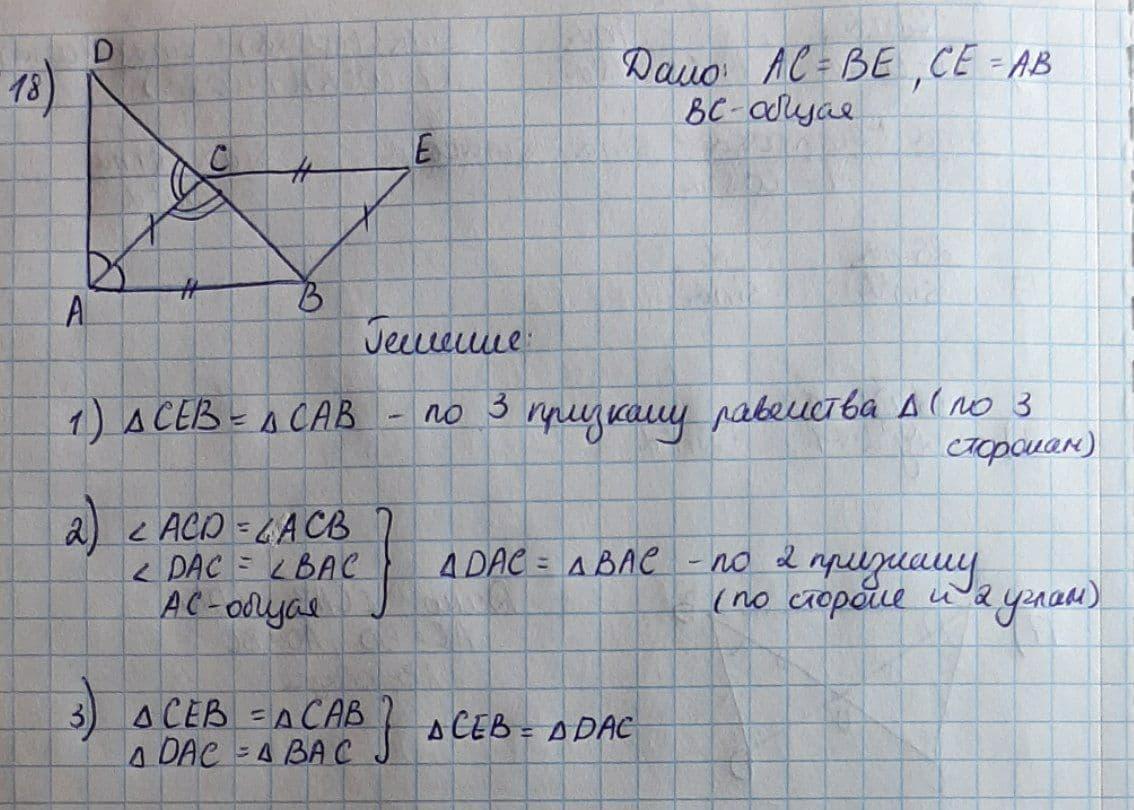 18)
D
C
E
A
B
Дано: AC = BE, CE = AB
BC - общая
Решение:
1) △CEB = △CAB - по 3 признаку равенства △ (по 3
сторонам)
2) ∠ACD = ∠ACB
∠DAC = ∠BAC
AC - общая
△DAC = △BAC - по 2 признаку
(по стороне и 2 углам)
3) △CEB = △CAB
△DAC = △BAC
△CEB = △DAC